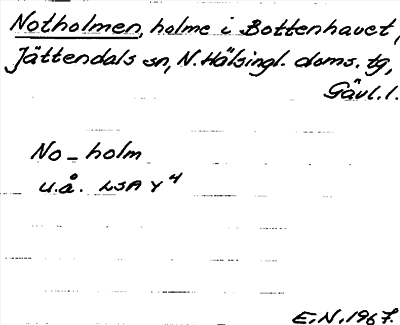 Notholmen, holme i Bottenhavet,
Jättendals sn, N. Hälsingl. doms. tg,
Gävl. l.
No-holm
u.å. LSA Y 4
E.N. 1967.